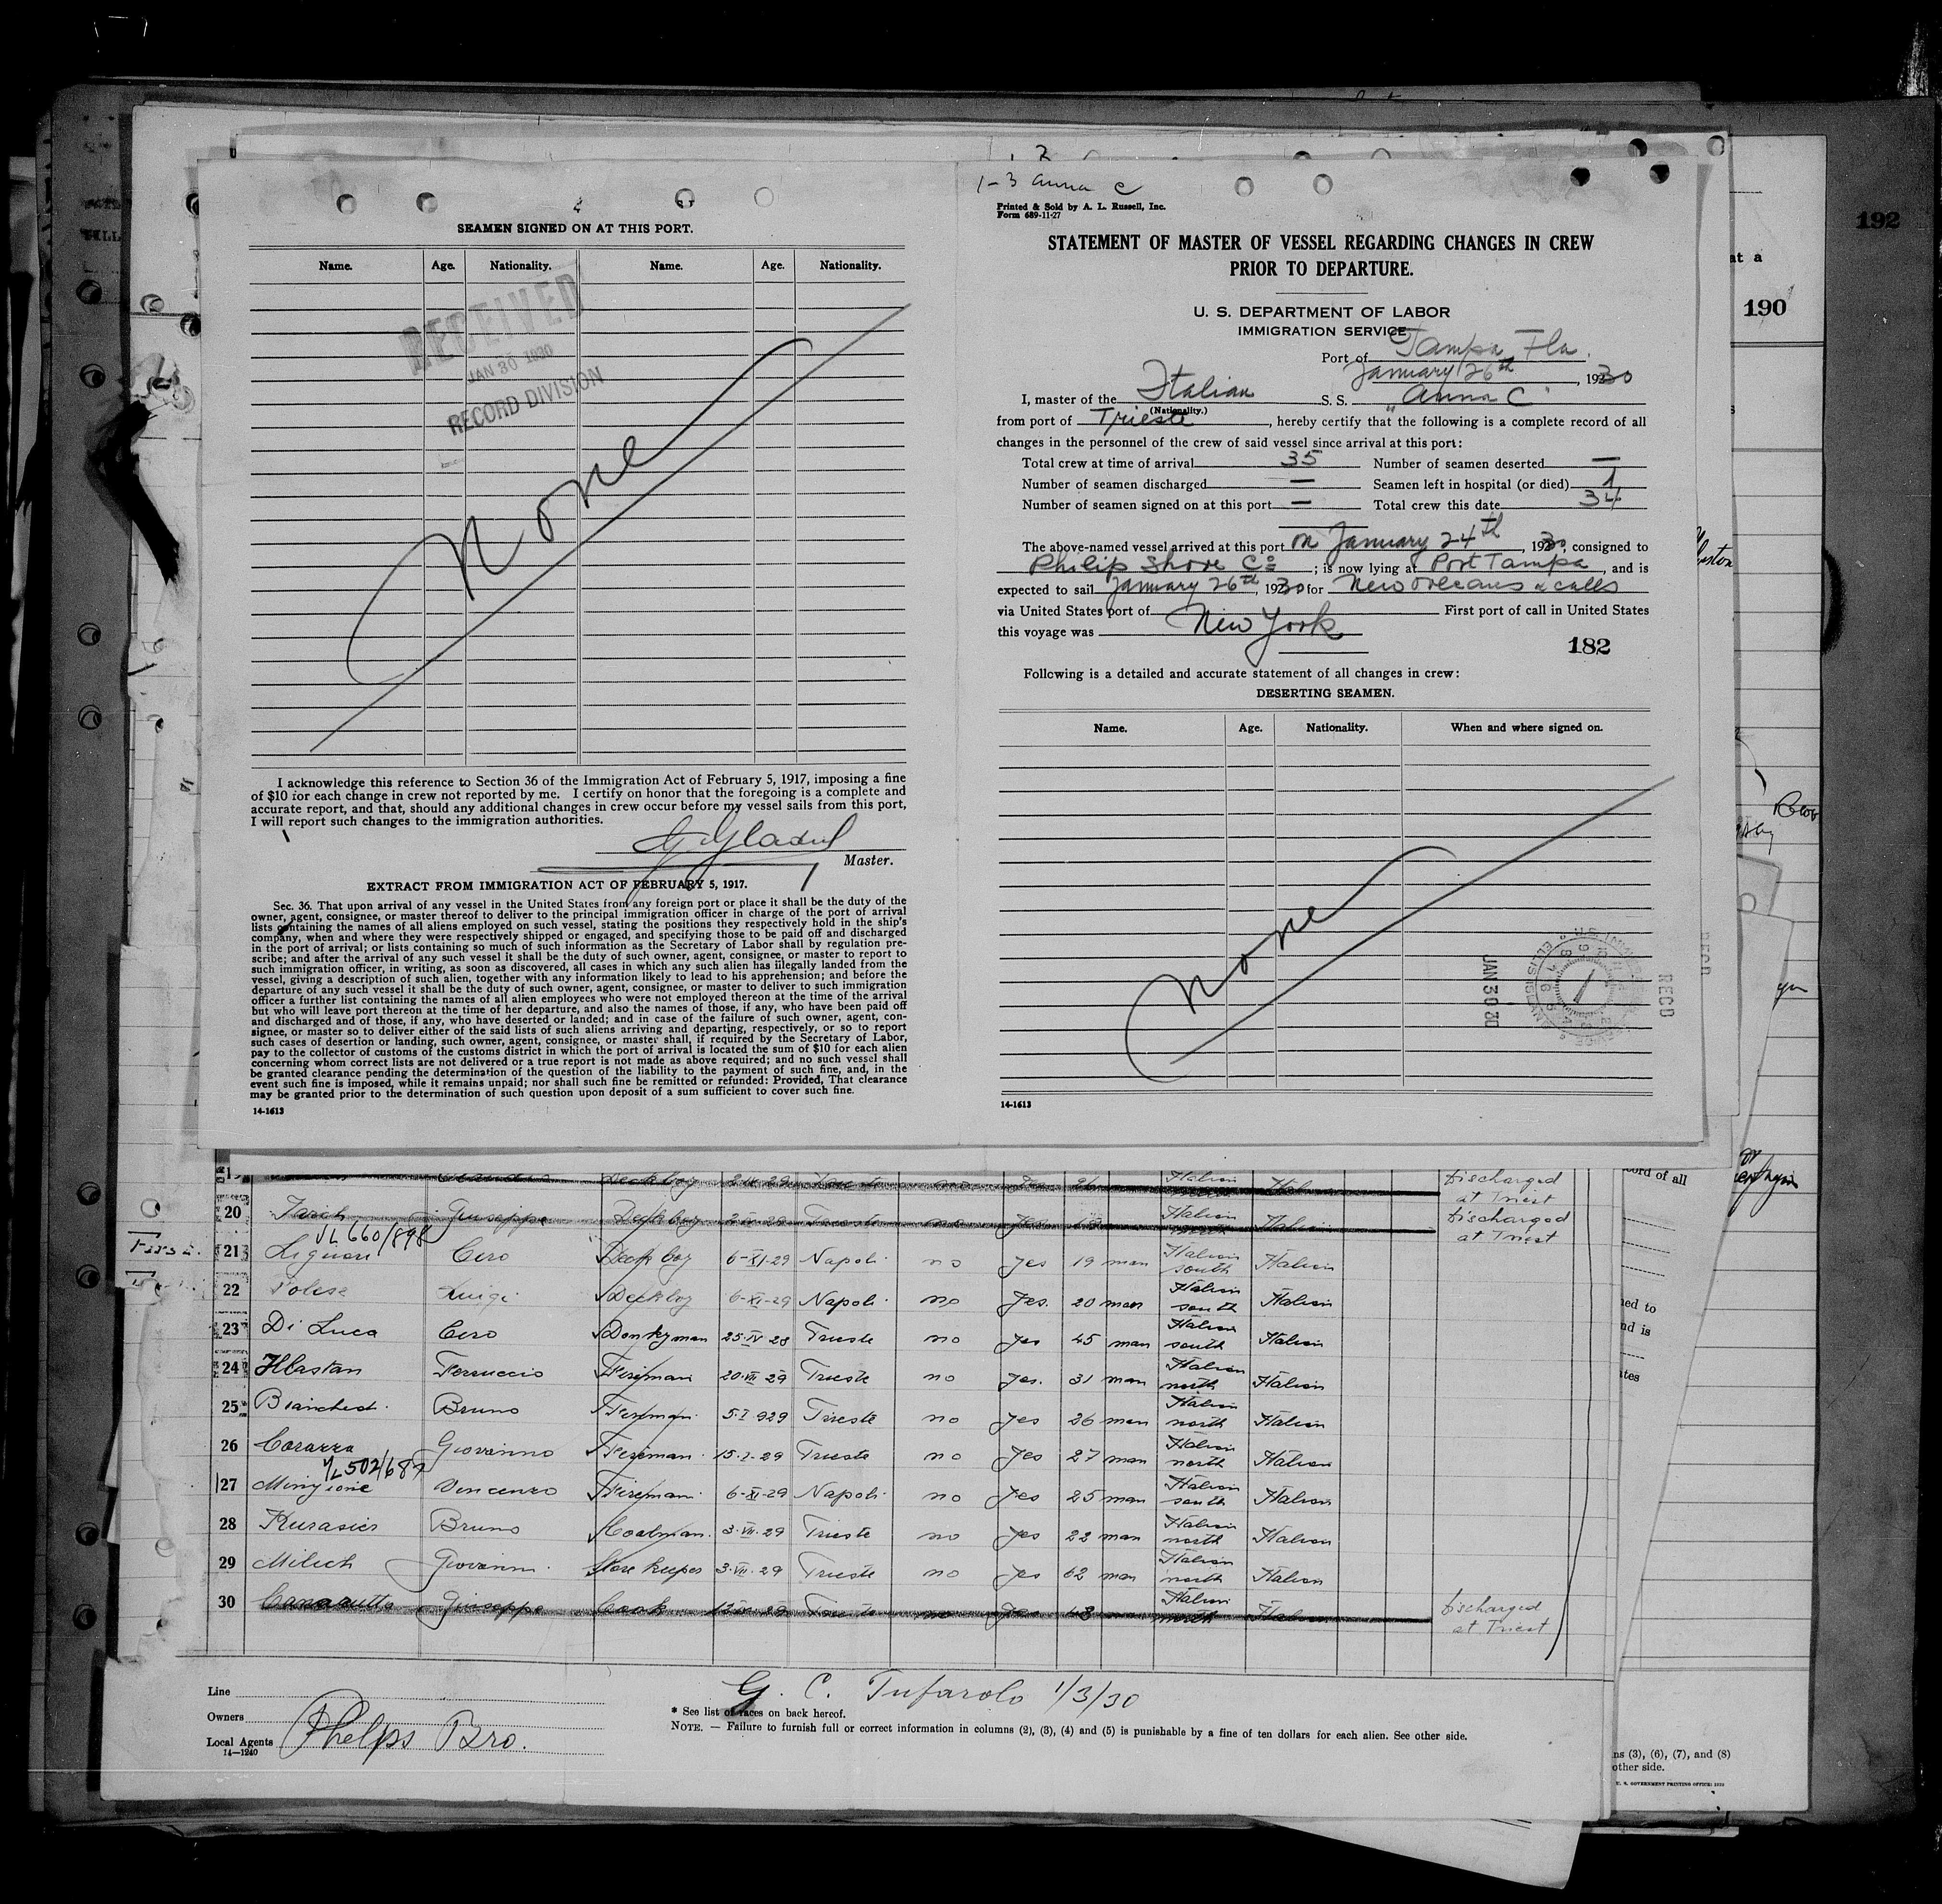 192
190
at a
SEAMEN SIGNED ON AT THIS PORT.
Name. Age. Nationality. Name. Age. Nationality.
RECEIVED
JAN 30 1930
RECORD DIVISION
None
I acknowledge this reference to Section 36 of the Immigration Act of February 5, 1917, imposing a fine
of $10 for each change in crew not reported by me. I certify on honor that the foregoing is a complete and
accurate report, and that, should any additional changes in crew occur before my vessel sails from this port,
I will report such changes to the immigration authorities.
Master.
EXTRACT FROM IMMIGRATION ACT OF FEBRUARY 5, 1917.
Sec. 36. That upon arrival of any vessel in the United States from any foreign port or place it shall be the duty of the
owner, agent, consignee, or master thereof to deliver to the principal immigration officer in charge of the port of arrival
lists containing the names of all aliens employed on such vessel, stating the positions they respectively hold in the ship's
company, when and where they were respectively shipped or engaged, and specifying those to be paid off and discharged
in the port of arrival; or lists containing so much of such information as the Secretary of Labor shall by regulation pre-
scribe; and after the arrival of any such vessel it shall be the duty of such owner, agent, consignee, or master to report to
such immigration officer, in writing, as soon as discovered, all cases in which any such alien has illegally landed from the
vessel, giving a description of such alien, together with any information likely to lead to his apprehension; and before the
departure of any such vessel it shall be the duty of such owner, agent, consignee, or master to deliver to such immigration
officer a further list containing the names of all alien employees who were not employed thereon at the time of the arrival
but who will leave port thereon at the time of her departure, and also the names of those, if any, who have been paid off
and discharged and of those, if any, who have deserted or landed; and in case of the failure of such owner, agent, con-
signee, or master so to deliver either of the said lists of such aliens arriving and departing, respectively, or so to report
such cases of desertion or landing, such owner, agent, consignee, or master shall, if required by the Secretary of Labor,
pay to the collector of customs of the customs district in which the port of arrival is located the sum of $10 for each alien
concerning whom correct lists are not delivered or a true report is not made as above required; and no such vessel shall
be granted clearance pending the determination of the question of the liability to the payment of such fine, and, in the
event such fine is imposed, while it remains unpaid; nor shall such fine be remitted or refunded: Provided, That clearance
may be granted prior to the determination of such question upon deposit of a sum sufficient to cover such fine.
14-1613
1-3 Anna C
Printed & Sold by A. L. Russell, Inc.
Form 689-11-27
STATEMENT OF MASTER OF VESSEL REGARDING CHANGES IN CREW
PRIOR TO DEPARTURE.
U. S. DEPARTMENT OF LABOR
IMMIGRATION SERVICE
Port of Tampa, Fla.
January 26th, 1930
I, master of the Italian S. S. "Anna C"
(Nationality.)
from port of Trieste, hereby certify that the following is a complete record of all
changes in the personnel of the crew of said vessel since arrival at this port:
Total crew at time of arrival 35 Number of seamen deserted —
Number of seamen discharged — Seamen left in hospital (or died) 1
Number of seamen signed on at this port — Total crew this date 34
The above-named vessel arrived at this port on January 24th, 1930, consigned to
Philip Shore Co; is now lying at Port Tampa, and is
expected to sail January 26th, 1930 for New Orleans & calls
via United States port of First port of call in United States
this voyage was New York
182
Following is a detailed and accurate statement of all changes in crew:
DESERTING SEAMEN.
Name. Age. Nationality. When and where signed on.
None
JAN 30 30
RECD
14-1613
19 Deck boy Italian Italian Discharged
at Triest
20 Tarich Giuseppe Deck boy Trieste no Yes Italian north Italian Discharged
at Triest
VL 660/898
21 Liguori Ciro Deck boy 6-XI-29 Napoli no Yes 19 man Italian south Italian
22 Polese Luigi Deck boy 6-XI-29 Napoli no Yes. 20 man Italian south Italian
23 Di Luca Ciro Donkyman 25-IV-28 Trieste no Yes 45 man Italian south Italian
24 Hlastan Ferruccio Fireman 20-VII 29 Trieste no Yes. 31 man Italian north Italian
25 Bruno Fireman 5-I 929 Trieste no Yes 26 man Italian north Italian
26 Corazza Giovanno Fireman 15-I-29 Trieste no Yes 27 man Italian north Italian
27 Mingione Vincenzo Fireman 6-XI-29 Napoli no Yes 25 man Italian south Italian
28 Kurasics Bruno Coalman 3-VII-29 Trieste no Yes 22 man Italian north Italian
29 Milich Giovanni Store keeper 3-VII-29 Trieste no Yes 62 man Italian north Italian
30 Giuseppe Cook Trieste no Yes 48 man Italian north Italian Discharged
at Triest
Line
Owners
Local Agents Phelps Bro.
14—1240
G. C. Tufarolo 1/3/30
* See list of races on back hereof.
NOTE. — Failure to furnish full or correct information in columns (2), (3), (4) and (5) is punishable by a fine of ten dollars for each alien. See other side.
ord of all
ned to
nd is
ates
ns (3), (6), (7), and (8)
other side.
U. S. GOVERNMENT PRINTING OFFICE: